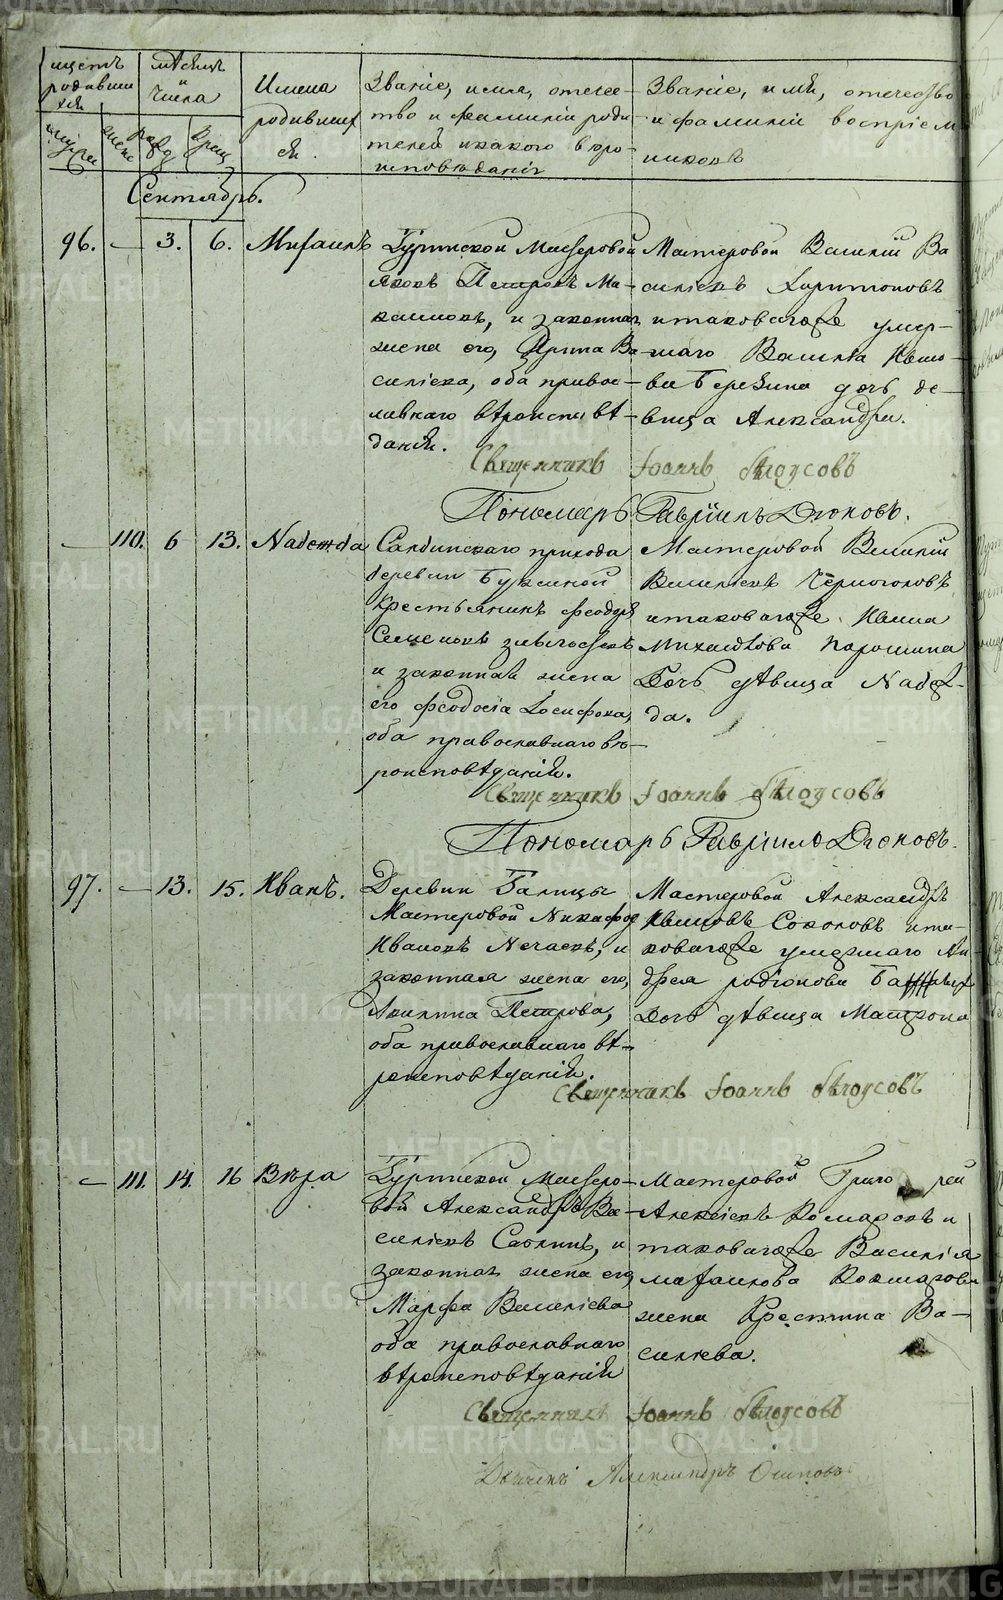 щетъ родившихся
мѣсяцъ и числа
Имена родившихся.
Званіе, имя, отечество и фамиліи родителей и какого вѣроисповѣданія
Званіе, имя, отечество и фамиліи воспріемниковъ
Сентябрь.
96. — 3. 6. Михаилъ
Мастеровой
Яковъ Петровъ Ма-
каиновъ, и законная
жена его, Ирина Ва-
силіева, оба православ-
лавнаго вѣроисповѣ-
данія.
Мастеровой Василій Ва
силіевъ Харитоновъ
и таковагоже умер-
шаго Василья Ивано-
ва Березина дочь де-
вица Александра.
Священникъ Іоаннъ Бѣлоусовъ
Пономарь Гавріилъ Дягоновъ.
— 110. 6 13. Nadежda
Салдинскаго прихода
деревни
крестьянинъ Феодоръ
Семеновъ
и законная жена
его Феодосія Іосифова,
оба православнаго вѣ-
роисповѣданія.
Мастеровой Василій
Василіевъ Черноголовъ
и таковагоже Ивана
Михайлова Паромина
дочь дѣвица Nadеж-
да.
Священникъ Іоаннъ Бѣлоусовъ
Пономарь Гавріилъ Дягоновъ.
97. — 13. 15. Иванъ.
Деревни Балицы
Мастеровой Никифоръ
Ивановъ Нечаевъ, и
законная жена его,
Акилина Петрова,
оба православнаго вѣ-
роисповѣданія.
Мастеровой Александръ
Ивановъ Соколовъ и та-
ковагоже умершаго Ан-
дрея Родіонова
дочь дѣвица Матрона
Священникъ Іоаннъ Бѣлоусовъ
— 111. 14. 16 Вѣра
Мастеро-
вой Александръ Ва-
силіевъ и
законная жена его,
Марфа Василіева
оба православнаго
вѣроисповѣданія
Мастеровой Григорей
Алексіевъ Комаровъ и
таковагоже Василія
Михаилова Кокшарова
жена Крестина Ва-
силіева.
Священникъ Іоаннъ Бѣлоусовъ
Дьячекъ Александръ Осиповъ
METRIKI.GASO-URAL.RU